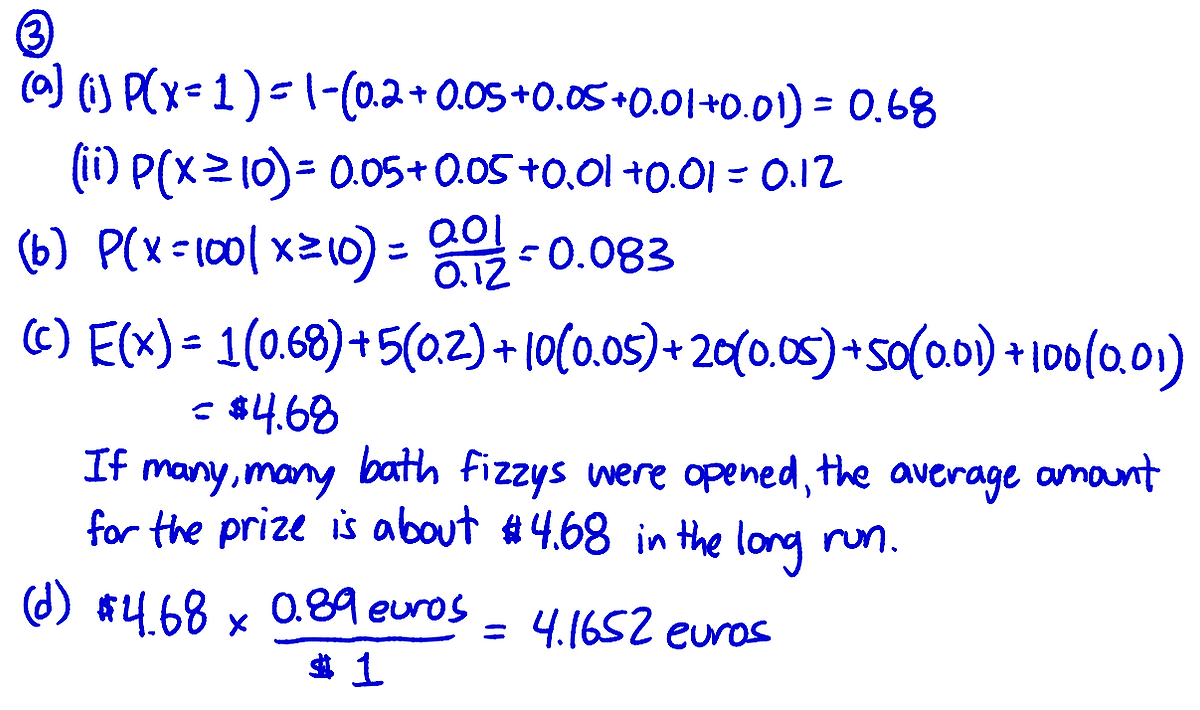 ③
(a) (i) P(x=1) = 1-(0.2+0.05+0.05+0.01+0.01) = 0.68
(ii) P(x≥10) = 0.05+0.05+0.01+0.01 = 0.12
(b) P(x=100| x≥10) = 0.01/0.12 = 0.083
(c) E(x) = 1(0.68)+5(0.2)+10(0.05)+20(0.05)+50(0.01)+100(0.01)
= $4.68
If many, many bath fizzys were opened, the average amount
for the prize is about $4.68 in the long run.
(d) $4.68 x 0.89 euros/$ 1 = 4.1652 euros